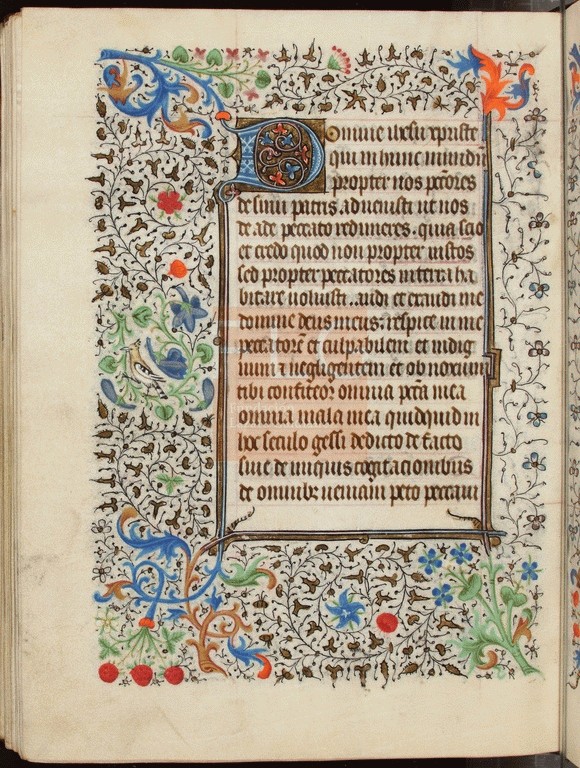 Domine ihesu xpriste
qui in hunc mundū
propter nos pctōres
de sinu patris aduenisti ut nos
de ade peccato redimeres. quia scio
et credo quod non propter iustos
sed propter peccatores in terra ha
bitare uoluisti. audi et exaudi me
domine deus meus: respice in me
peccatorē et culpabilem et indig
num & negligentem et ob noxium
tibi confiteor omnia pctā mea
omnia mala mea quidquid in
hoc seculo gessi de dicto de facto
siue de iniquis cogitacionibus
de omnibꝫ ueniam peto peccaui